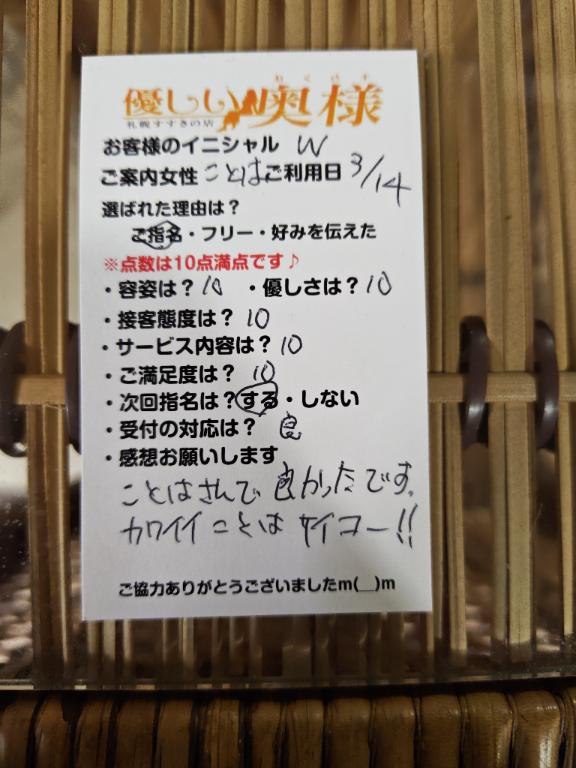 わくさま
優しい奥様
札幌すすきの店
お客様のイニシャル W
ご案内女性 ことは ご利用日 3/14
選ばれた理由は?
ご指名・フリー・好みを伝えた
※点数は10点満点です♪
・容姿は? 10 ・優しさは? 10
・接客態度は? 10
・サービス内容は? 10
・ご満足度は? 10
・次回指名は?する・しない
・受付の対応は? 良
・感想お願いします
ことはさんで良かったです。
カワイイことはサイコー!!
ご協力ありがとうございましたm(__)m